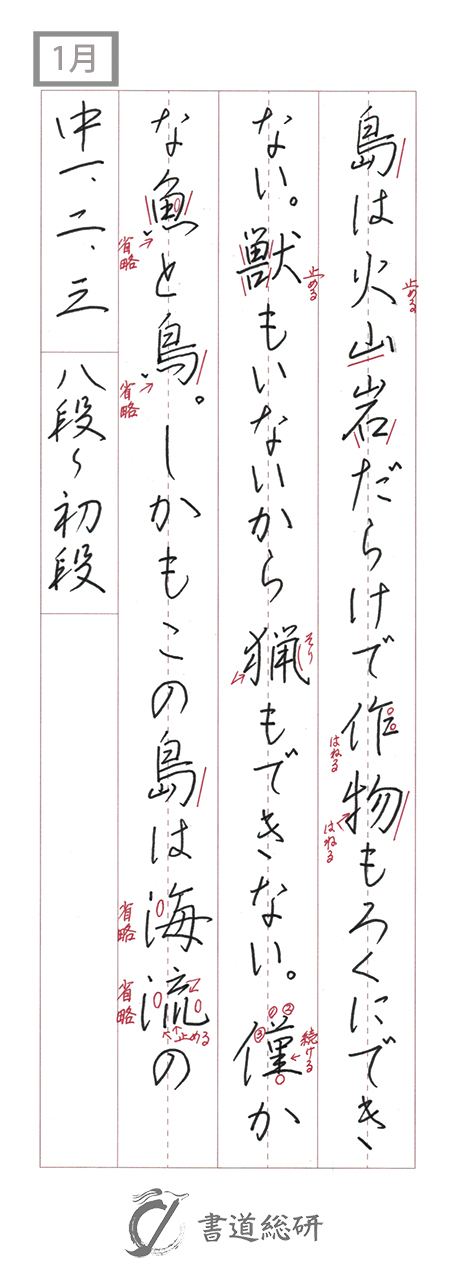 1月
島は火山岩だらけで作物もろくにでき
止める
はねる
はねる
ない。獣もいないから猟もできない。僅か
止める
そり
①②
③
続ける
な魚と鳥。しかもこの島は海流の
省略
省略
省略
省略
止める
中一、二、三
八段〜初段
書道総研